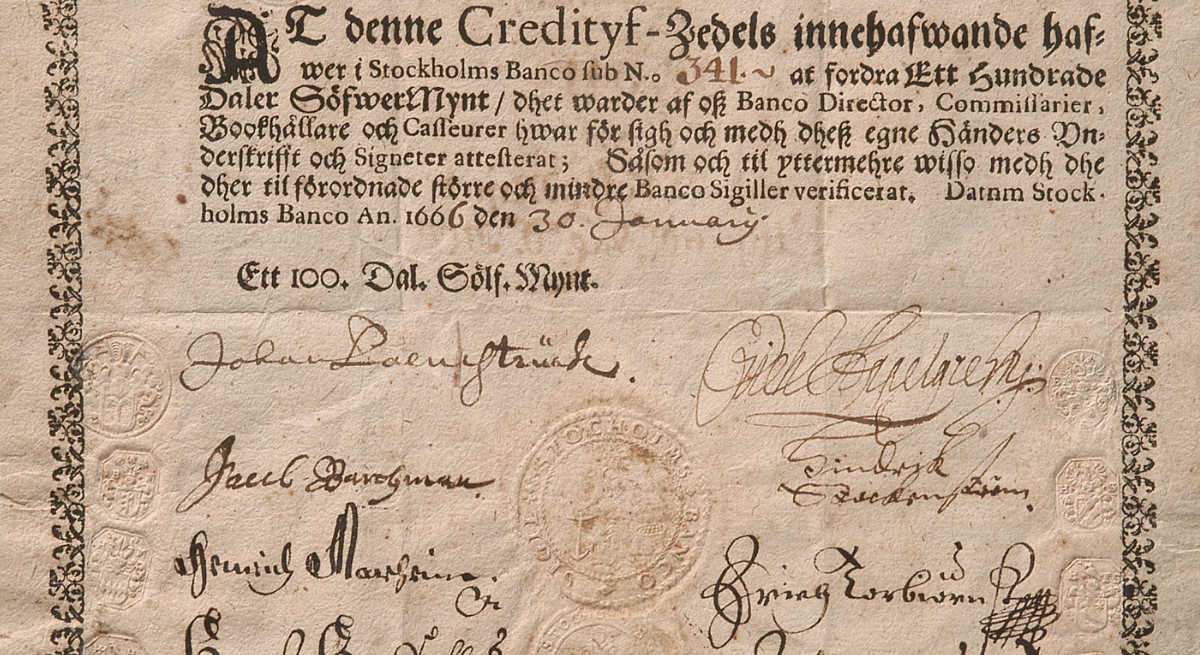 AT denne Credityf-Zedels innehafwande haf-
wer i Stockholms Banco sub N.o 341.~ at fordra Ett Hundrade
Daler SöfwerMynt / dhet warder af oß Banco Director, Commissarier,
Bookhållare och Casseurer hwar för sigh och medh dheß egne Händers Vn-
derskrifft och Signeter attesterat; Såsom och til yttermehre wisso medh dhe
dher til förordnade större och mindre Banco Sigiller verificerat. Datum Stock-
holms Banco An. 1666 den 30. January.
Ett 100. Dal. Sölf. Mynt.
Johan
Jacob Barchman
Hindrijk
Stockenström
Henrich
Erich Torbiörn
STOCHOLMS BANCO